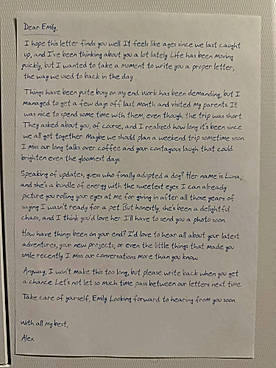 Dear Emily,
I hope this letter finds you well. It feels like ages since we last caught
up, and I've been thinking about you a lot lately. Life has been moving
quickly, but I wanted to take a moment to write you a proper letter,
the way we used to back in the day.
Things have been quite busy on my end. Work has been demanding, but I
managed to get a few days off last month and visited my parents. It
was nice to spend some time with them, even though the trip was short.
They asked about you, of course, and I realized how long it's been since
we all got together. Maybe we should plan a weekend trip sometime soon.
I miss our long talks over coffee and your contagious laugh that could
brighten even the gloomiest days.
Speaking of updates, guess who finally adopted a dog? Her name is Luna,
and she's a bundle of energy with the sweetest eyes. I can already
picture you rolling your eyes at me for giving in after all those years of
saying I wasn't ready for a pet. But honestly, she's been a delightful
chaos, and I think you'd love her. I'll have to send you a photo soon.
How have things been on your end? I'd love to hear all about your latest
adventures, your new projects, or even the little things that made you
smile recently. I miss our conversations more than you know.
Anyway, I won't make this too long, but please write back when you get
a chance. Let's not let so much time pass between our letters next time.
Take care of yourself, Emily. Looking forward to hearing from you soon.
With all my best,
Alex